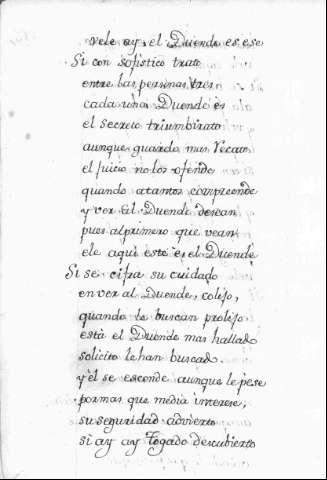 vele ay, el Duende es ese
Si con sofistico trato
entre las personas tres
cada una Duende es
el secreto triumbirato
aunque guardo mas Recato
el juicio no los ofende
quando a tantos comprende
y ver al Duende desean
pues al primero que vean
ele aqui este es el Duende
Si se cifra su cuidado
en ver al Duende, colijo,
quando le buscan prolijo
está el Duende mas hallado
solicito le han buscado
y él se esconde aunque le pese
por mas que media interese,
su seguridad advierto
si ay ay Togado descubierto